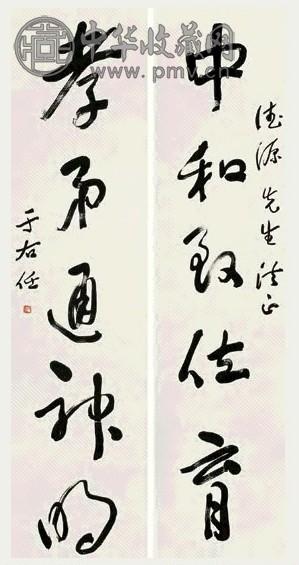 中华收藏网
www.pmv.cn
德源先生法正
中和致位育
孝弟通神明
于右任